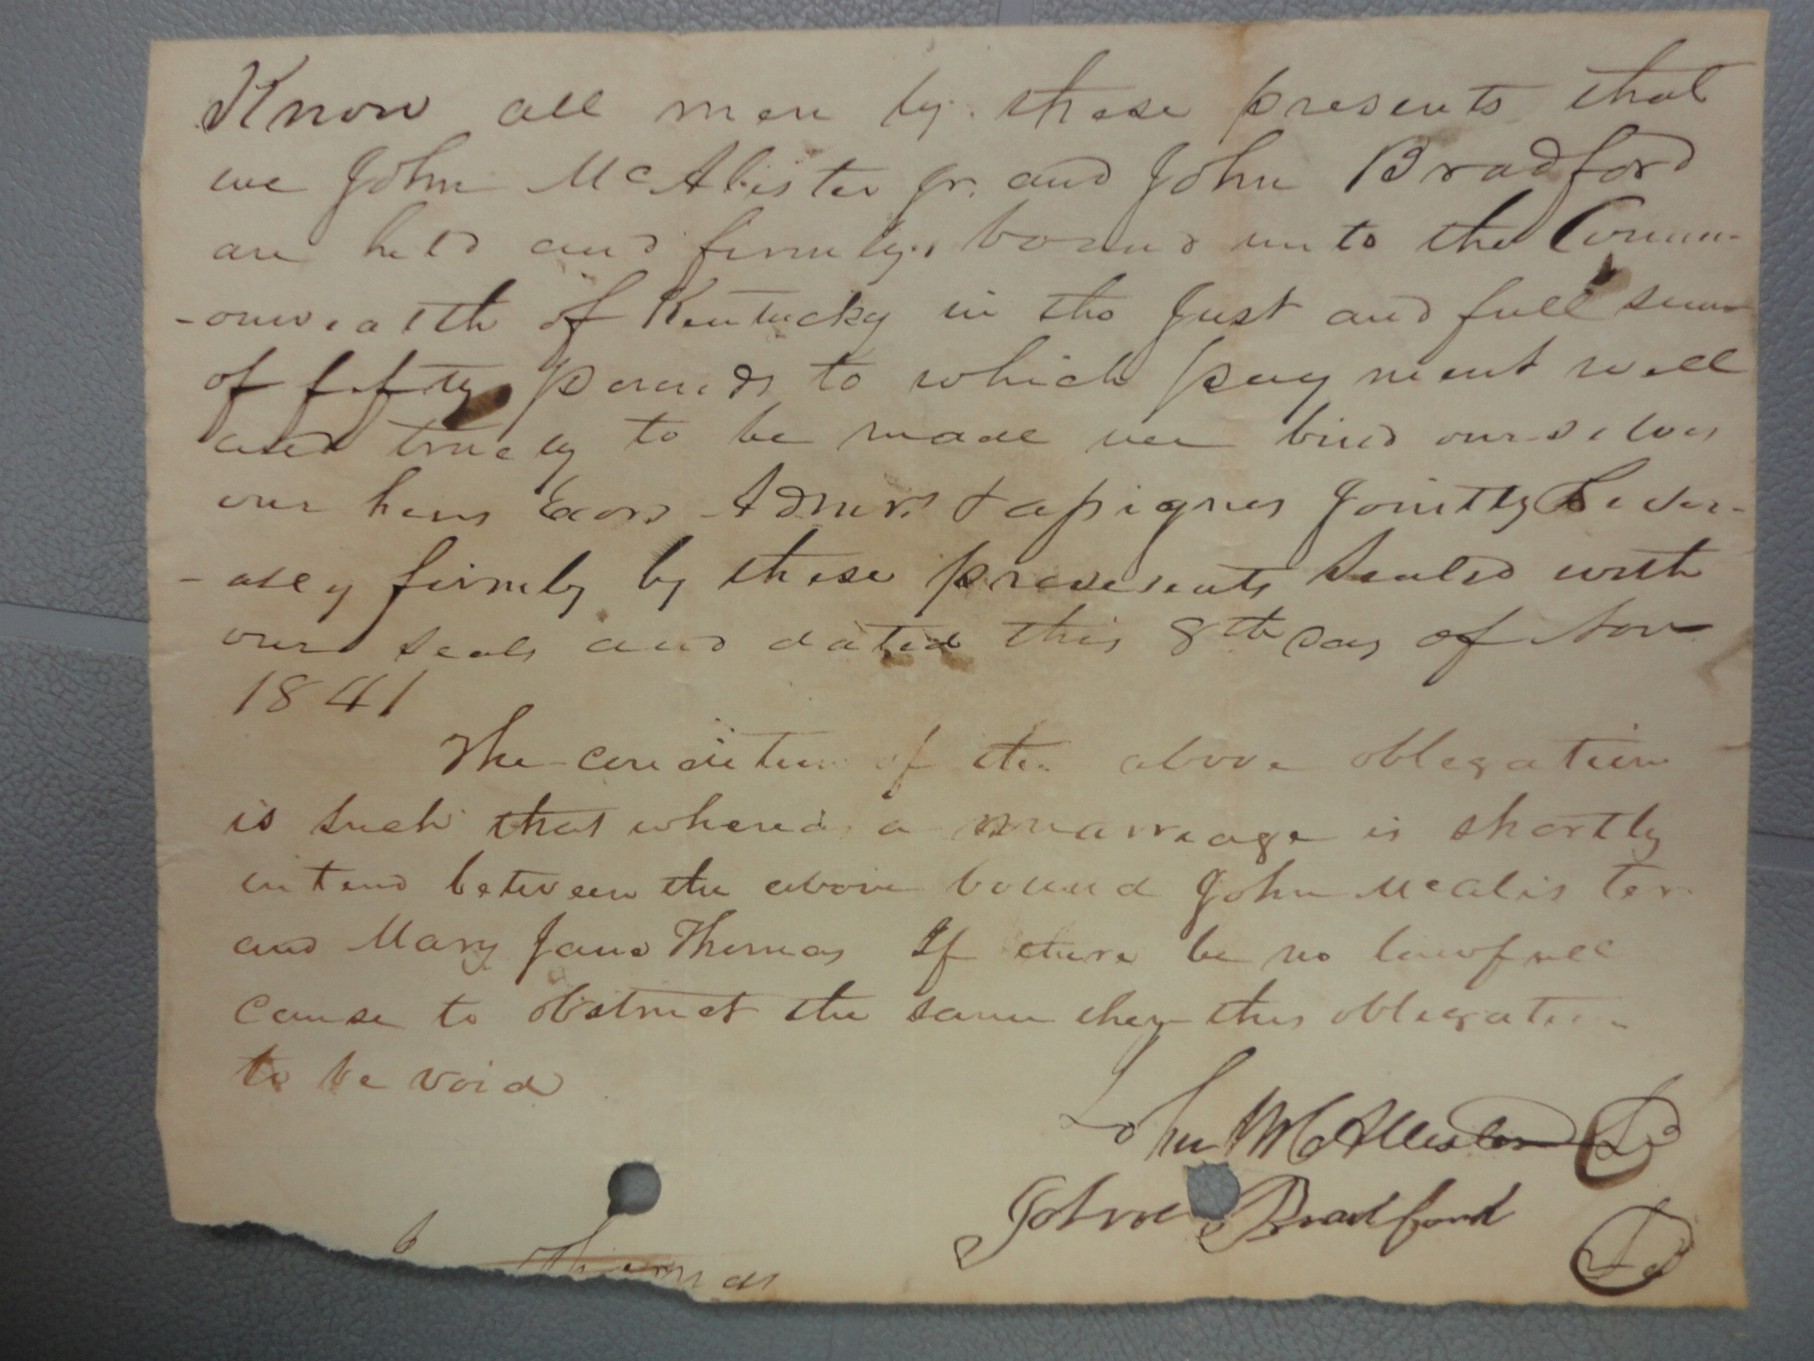 Know all men by these presents that
we John McAlister Jr. and John Bradford
are held and firmly bound unto the Comm-
-onwealth of Kentucky in the Just and full sum
of fifty pounds to which payment well
and truely to be made we bind ourselves
our heirs Exors Admrs & assignes Jointly Sever-
-ally firmly by these presesents Sealed with
our seals and dated this 8th day of Nov
1841
The condition of the above obligation
is such that whereas a marriage is shortly
intend between the above bound John McAlister
and Mary Jane Thomas If there be no lawfull
cause to obstruct the same then this obligation
to be void
John McAllister Ls
John Bradford Ls
Thomas